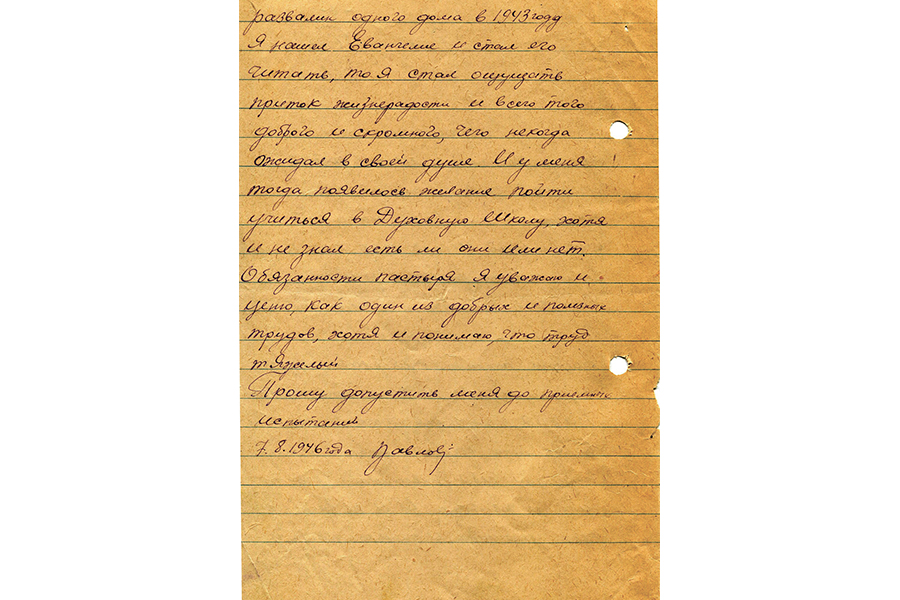 развалин одного дома в 1943 году
Я нашел Евангелие и стал его
читать, то я стал ощущать
приток жизнерадости и всего того
доброго и скромного, чего некогда
ожидал в своей душе. И у меня
тогда появилось желание пойти
учиться в Духовную Школу, хотя
и не знал есть ли они или нет.
Обязанности пастыря я уважаю и
ценю, как один из добрых и полезных
трудов, хотя и понимаю, что труд
тяжелый
Прошу допустить меня до приемных
испытаний
7.8.1946 года Павлов